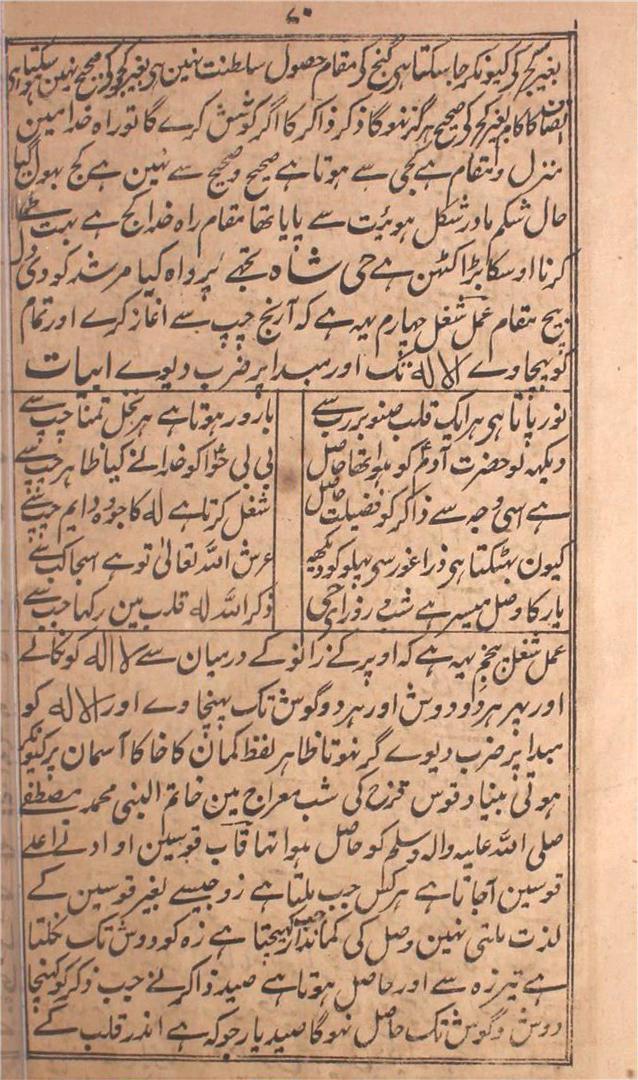 ۷۰
بغیر کج کی کیونکر جا سکتا ہی گنج کی مقام حصول سلطنت نہین ہی بغیر کجی کی صحیح نہین ہو سکتا ہی
انصاف کا کام بغیر کج کی صحیح ہرگز نہوگا ذکر ذاکر کا اگر کوشش کرے گا تو راہ خدا مین
منزل و مقام ہے کجی سے ہوتا ہے صحیح و صحیح سے نہین ہے کج بہول گیا
حال شکم مادر شکل ہویت سے پایا تھا مقام راہ خدا کج ہے بہت
کرنا اوسکا بڑا کٹہن ہے حی شاہ تجھے پرواہ کیا مرشد کو دی دل
بیچ مقام عمل شغل چہارم یہہ ہے کہ آرنج چپ سے آغاز کرے اور تمام
کو پہنچاوے لا اله تک اور مبدا پر ضرب دیوے ابیات
نور پاتا ہی ہر ایک قلب صنوبر رب سے
بارور ہوتا ہے ہر نخل تمنا چپ سے
دیکہہ لو حضرت آدم کو ہوا تھا حاصل
بی بی حوّا کو خدا نے کیا ظاہر چپ سے
ہے اسی وجہ سے ذاکر کو فضیلت حاصل
شغل کرتا ہے له کا جو وہ دایم چپ سے
کیون بہٹکتا ہی ذرا غور سی پہلو کو دیکھہ
عرش اللہ تعالیٰ تو ہے اسجا کب سے
یار کا وصل میسر ہے شب و روز ای حی
ذکر اللہ له قلب مین رکہا جب سے
عمل شغل پنجم یہہ ہے کہ اوپر کے زانو کے درمیان سے لا اله کو نکالے
اور پہر ہر دو دوش اور ہر دو گوش تک پہنچاوے اور لا اله کو
مبدا پر ضرب دیوے گر نہوتا ظاہر لفظ کمان کا خاکا آسمان پر کیونکر
ہوتی بنیاد قوس قزح کی شب معراج مین خاتم النبی محمد مصطفے
صلی اللہ علیہ والہ وسلم کو حاصل ہوا تہا قاب قوسین او ادنے اعلے
قوسین آجاتا ہے ہر کس جب ملتا ہے زوجیسے بغیر قوسین کے
لذت ملتی نہین وصل کی کماندار جب کہیچتا ہے زہ کو دوش تک نکلتا
ہے تیر زہ سے اور حاصل ہوتا ہے صید ذاکر نے جب ذکر کو کہنچا
دوش و گوش تک حاصل نہوگا صید یار جو کہ ہے اندر قلب کے